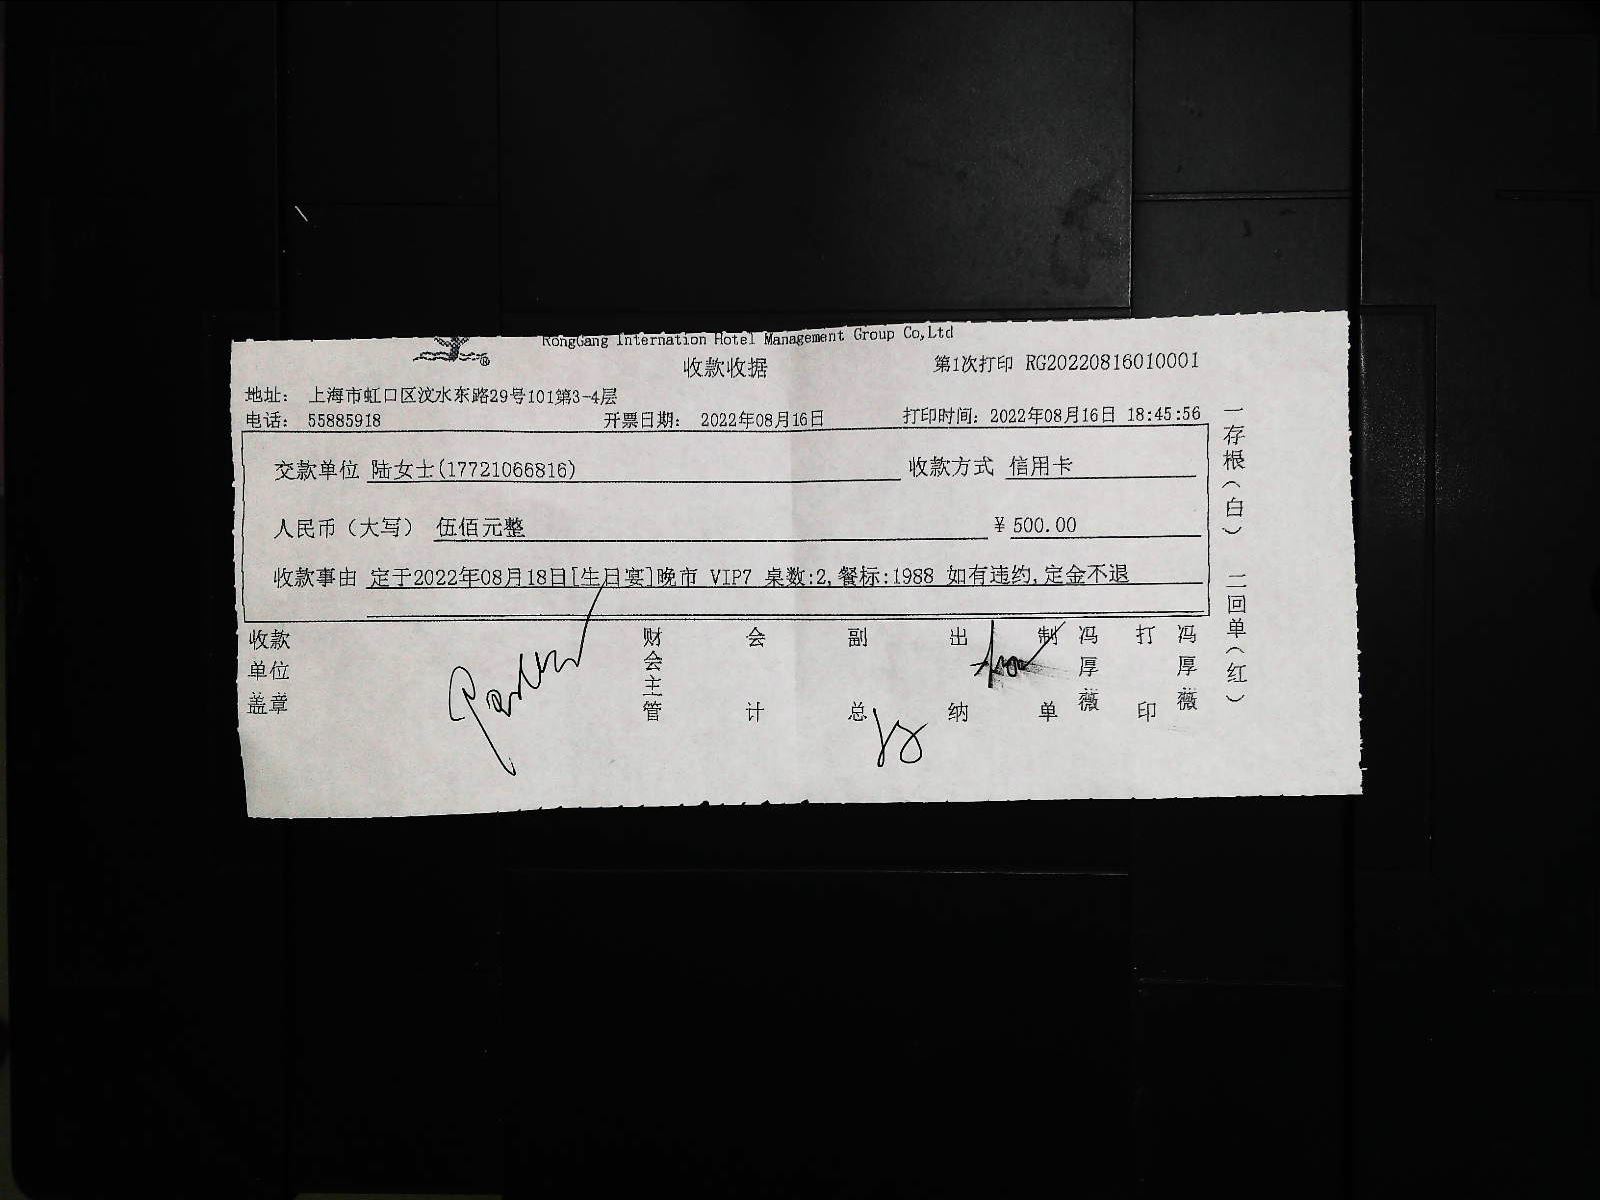 RongGang Internation Hotel Management Group Co,Ltd
收款收据
第1次打印 RG20220816010001
地址: 上海市虹口区汶水东路29号101第3-4层
电话: 55885918 开票日期: 2022年08月16日 打印时间: 2022年08月16日 18:45:56
交款单位 陆女士(17721066816) 收款方式 信用卡
人民币(大写) 伍佰元整 ¥500.00
收款事由 定于2022年08月18日[生日宴]晚市 VIP7 桌数:2,餐标:1988 如有违约,定金不退
收款单位盖章
财会主管
会计
副总
出纳
制单
冯厚薇
打印
冯厚薇
一存根(白) 二回单(红)